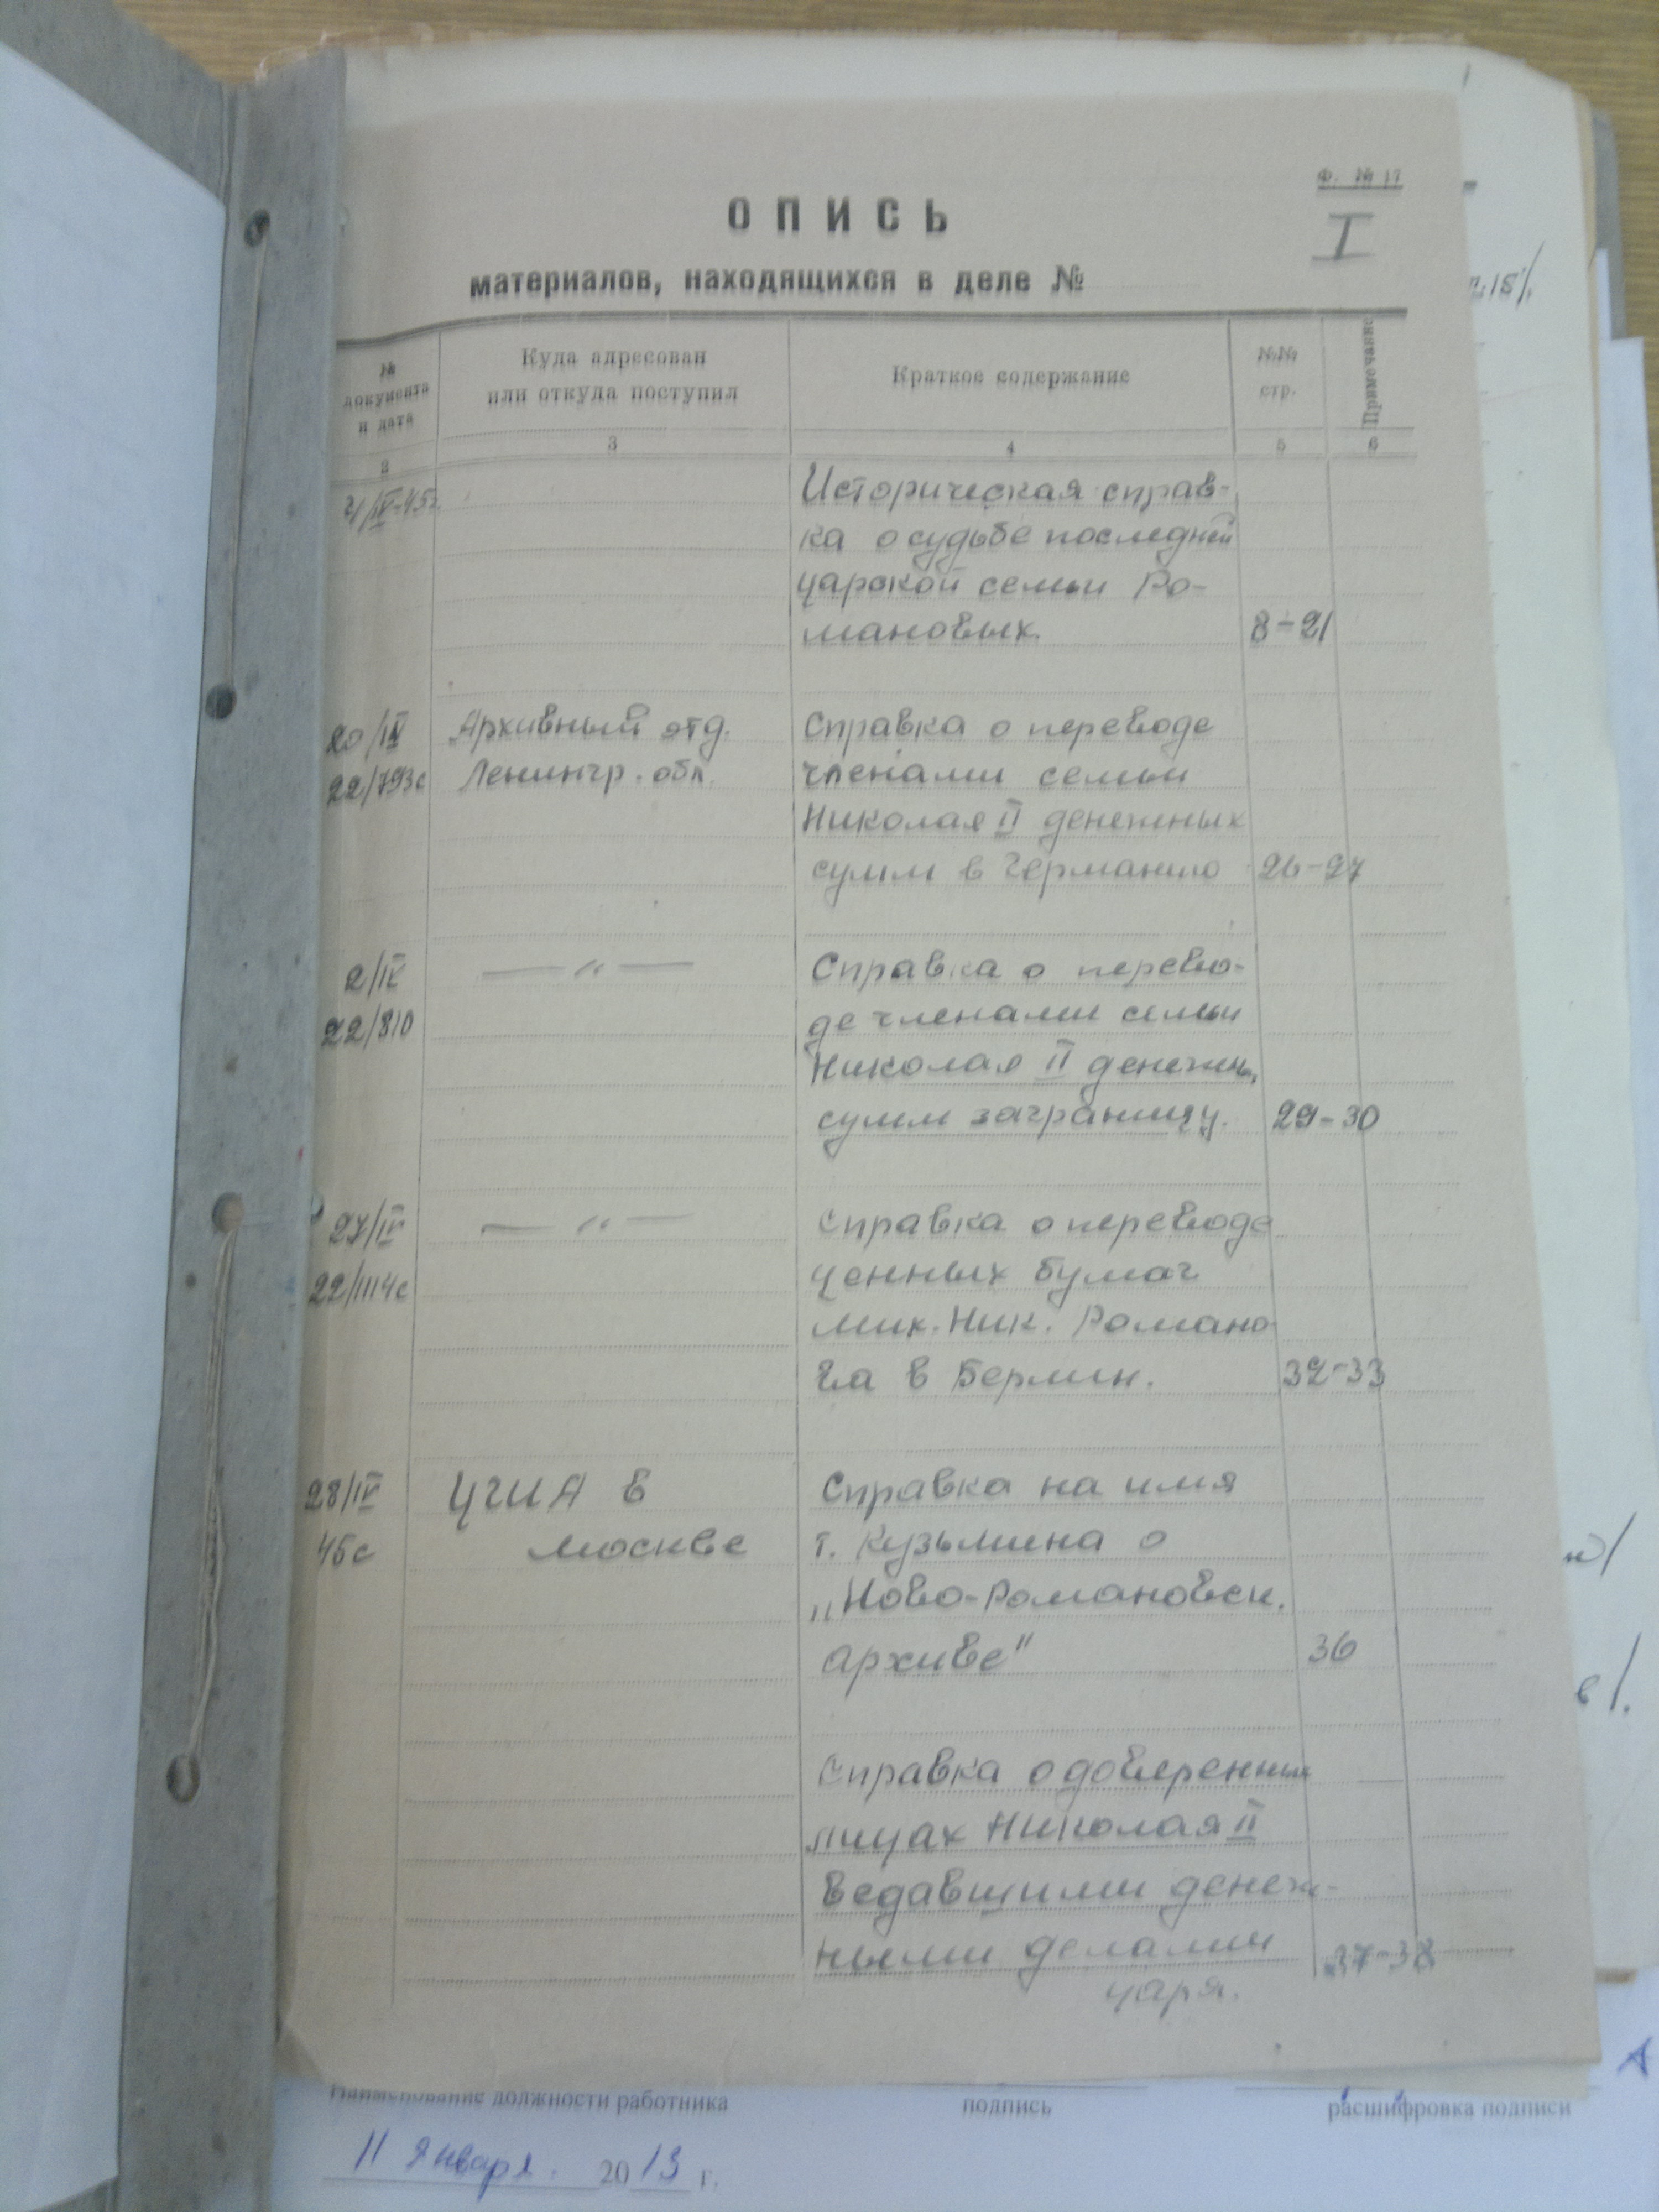 Ф. № 17
I
ОПИСЬ
материалов, находящихся в деле №
№ документа и дата
Куда адресован или откуда поступил
Краткое содержание
№№ стр.
Примечание
2 3 4 5 6
Историческая справ-
ка о судьбе последней
царской семьи Ро-
мановых. 8-21
Архивный отд. Справка о переводе
22/793с Ленингр. обл. членами семьи
Николая II денежных
сумм в Германию 26-27
2/IV — " — Справка о перево-
22/810 де членами семьи
Николая II денежн.
сумм заграницу. 29-30
27/IV — " — Справка о переводе
22/1114с ценных бумаг
Мих. Ник. Романо-
ва в Берлин. 32-33
28/IV ЦГИА в Справка на имя
45с Москве т. Кузьмина о
„Ново-Романовск.
архиве" 36
Справка о доверенных
лицах Николая II
ведавшими денеж-
ными делами 37-38
царя.
Наименование должности работника подпись расшифровка подписи
11 января. 2013 г.